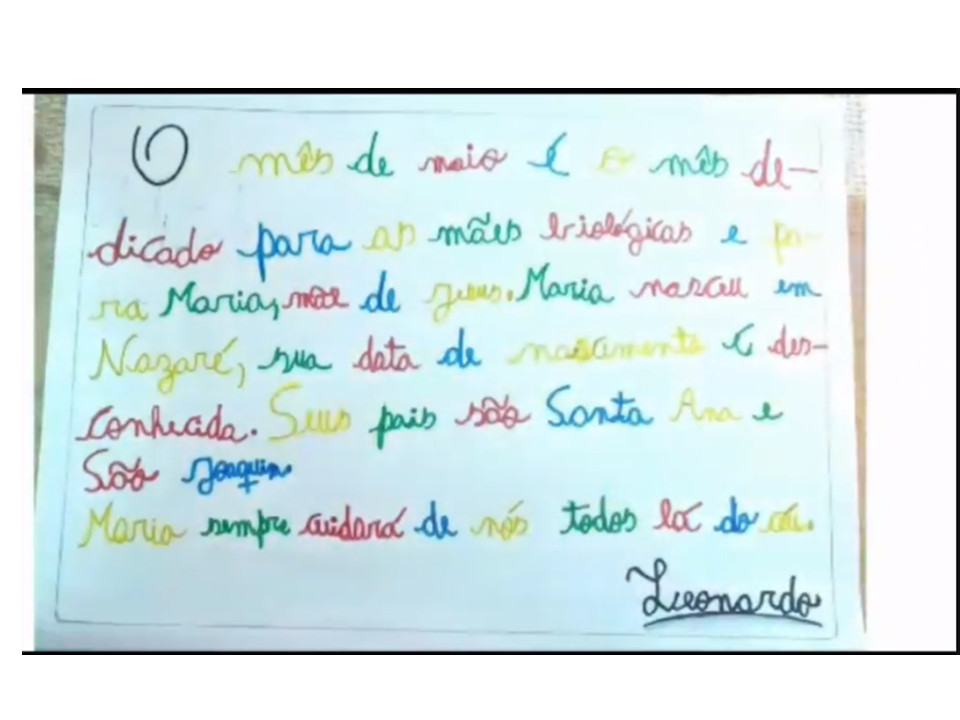 O mês de maio é o mês de-
dicado para as mães biológicas e pa-
ra Maria, mãe de Jesus. Maria nasceu em
Nazaré, sua data de nascimento é des-
conhecida. Seus pais são Santa Ana e
São Joaquim
Maria sempre cuidará de nós todos lá do céu.
Leonardo